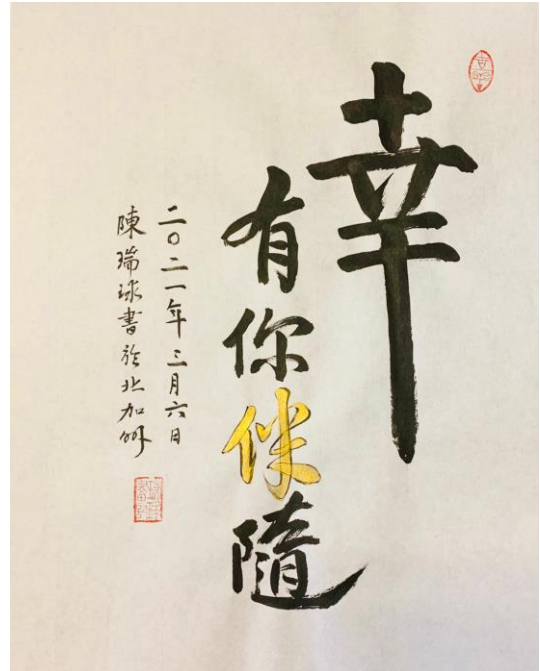 幸
有你伴隨
二〇二一年三月六日
陳瑞球書於北加州